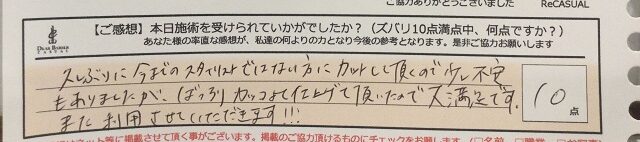 ご協力ありがとうございました ReCASUAL
【ご感想】本日施術を受けられていかがでしたか?(ズバリ10点満点中、何点ですか?)
あなた様の率直な感想が、私達の何よりの力となり今後の参考となります。是非ご協力お願いします
久しぶりに今までのスタイリストではない方にカットして頂くので少し不安
もありましたが、ばっちりカッコよく仕上げて頂いたので大満足です。
また利用させていただきます!!!
10点
ネット等に掲載させて頂く事がございます。掲載のご協力頂けるものにチェックをお願いします。